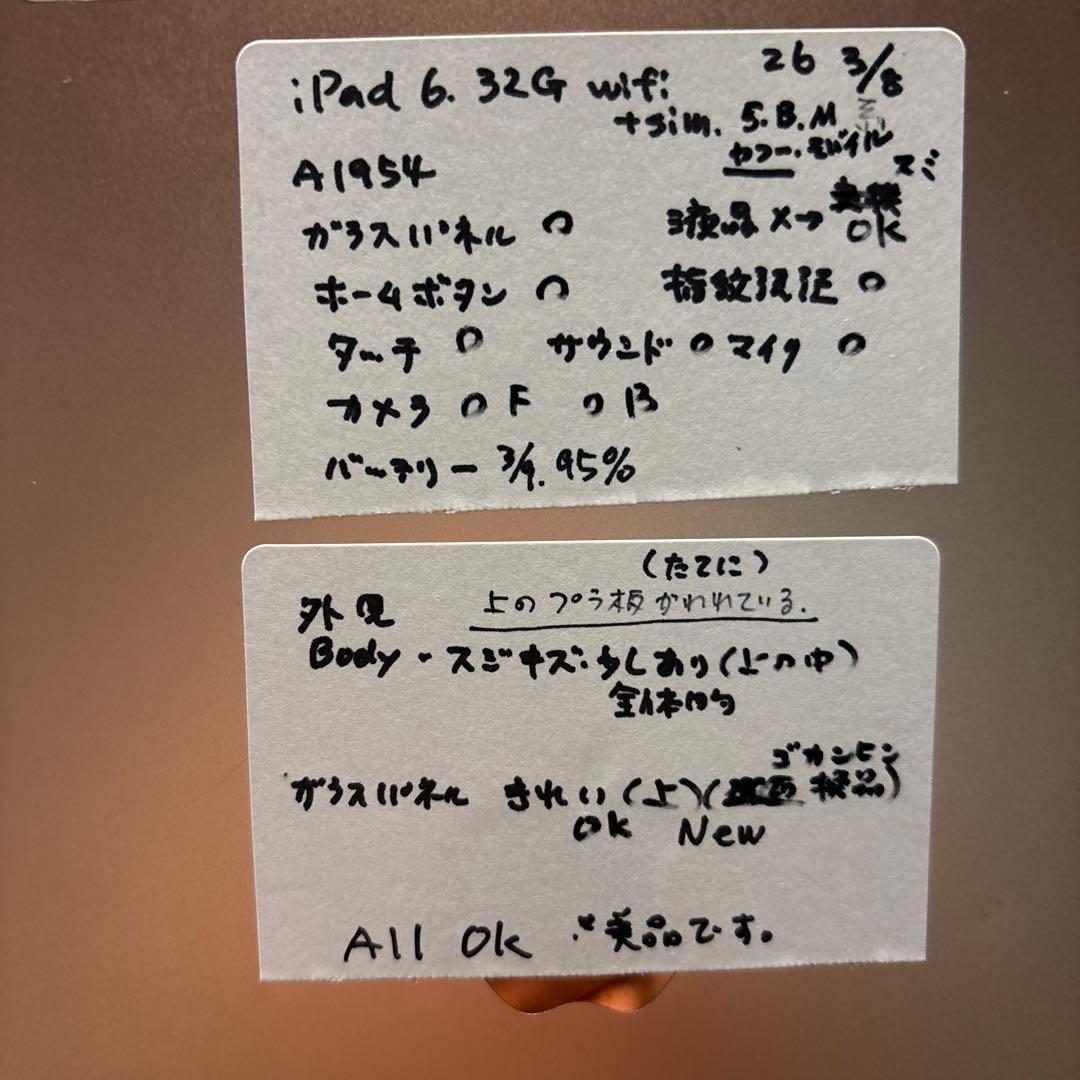 iPad 6. 32G wifi 26 3/8
+sim. S.B.M
ヤフー・モバイル
A1954 スミ
ガラスパネル ○ 液晶 ×→ OK
ホームボタン ○ 指紋認証 ○
タッチ ○ サウンド ○ マイク ○
カメラ ○ F ○ B
バッテリー 3/9. 95%
(たてに)
外見 上のプラ板かわれている.
Body・スジキズ:少しあり(上の中)
全体的
ゴカンヒン
ガラスパネル きれい(上)( 換品)
OK New
All Ok 美品です。